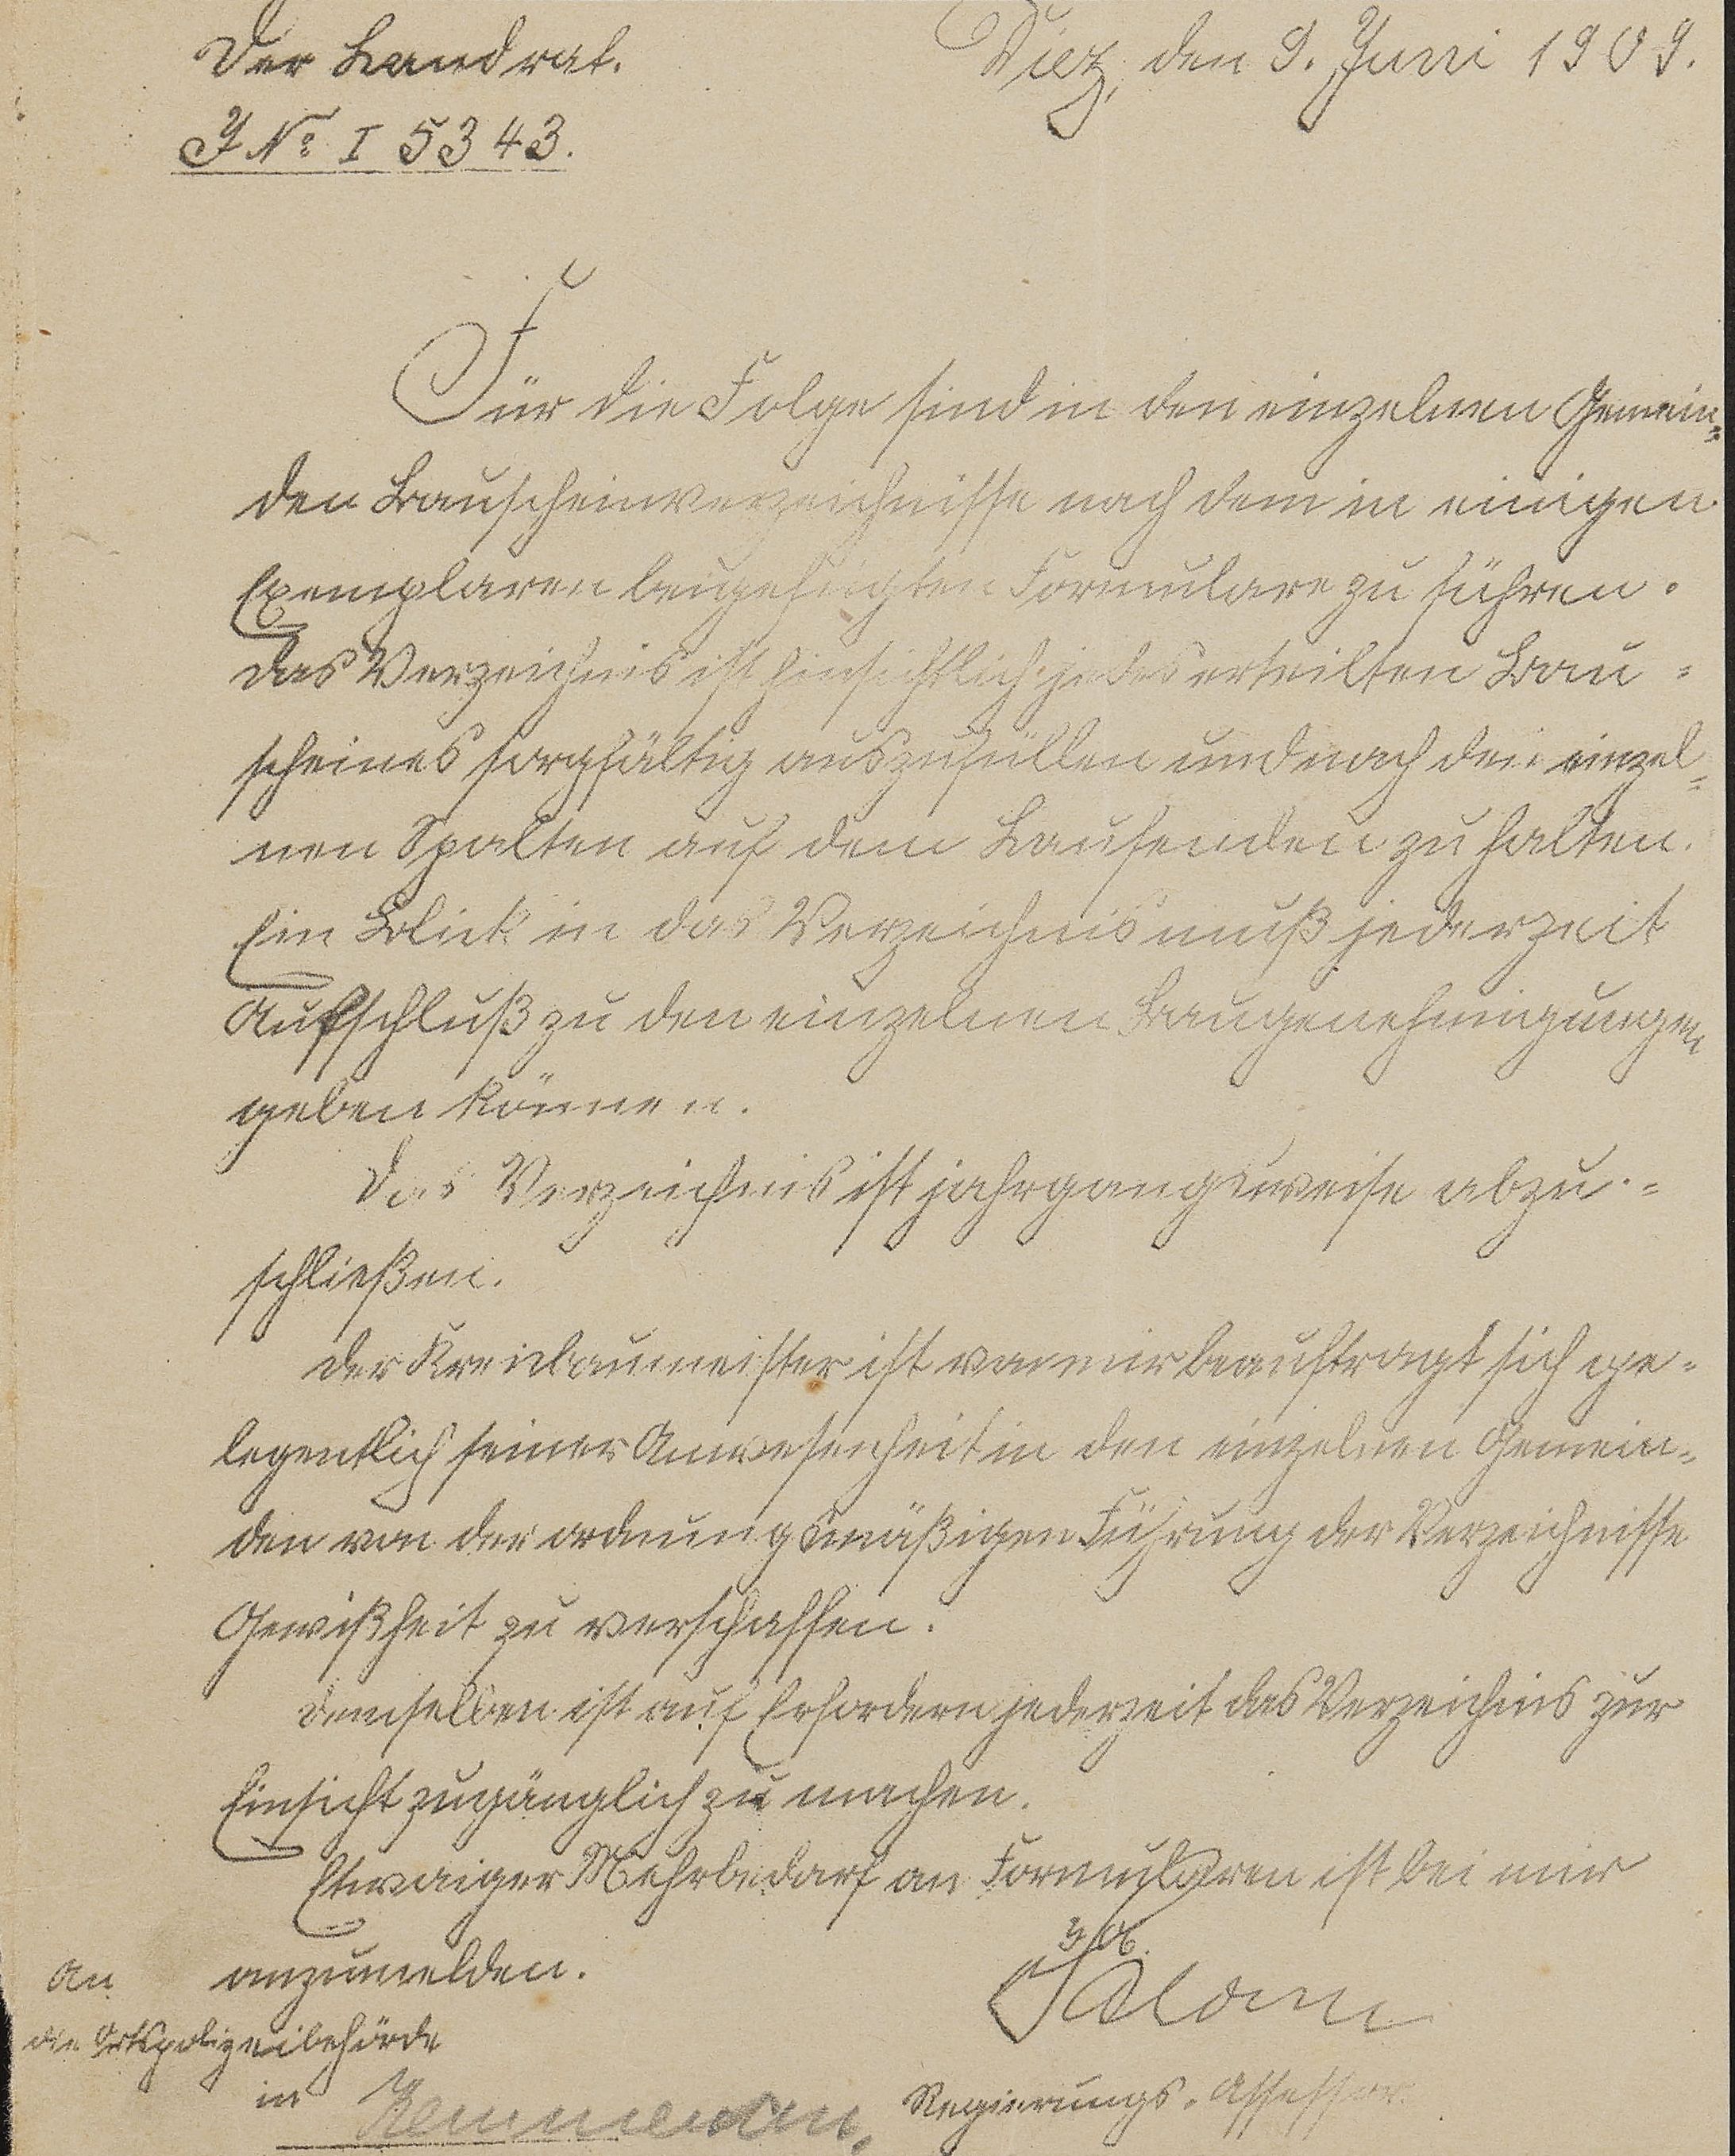 Der Landrat.
Diez, den 9. Juni 1909.
J No I 5343.
Für die Folge sind in den einzelnen Gemein=
den Bauscheinverzeichnisse nach dem in einigen
Exemplaren beigefügten Formulare zu führen.
Das Verzeichnis ist hinsichtlich jedes erteilten Bau=
scheines sorgfältig auszufüllen und nach den einzel=
nen Spalten auf dem Laufenden zu halten.
Ein Blick in das Verzeichnis muß jederzeit
Aufschluß zu den einzelnen Baugenehmigungen
geben können.
Das Verzeichnis ist jahrgangsweise abzu=
schließen.
Der Kreisbaumeister ist von mir beauftragt sich ge=
legentlich seiner Anwesenheit in den einzelnen Gemein=
den von der ordnungsmäßigen Führung der Verzeichnisse
Gewißheit zu verschaffen.
Demselben ist auf Erfordern jederzeit das Verzeichnis zur
Einsicht zugänglich zu machen.
Etwaiger Mehrbedarf an Formularen ist bei mir
anzumelden.
An
die Ortspolizeibehörde
in
Regierungs=Assessor.